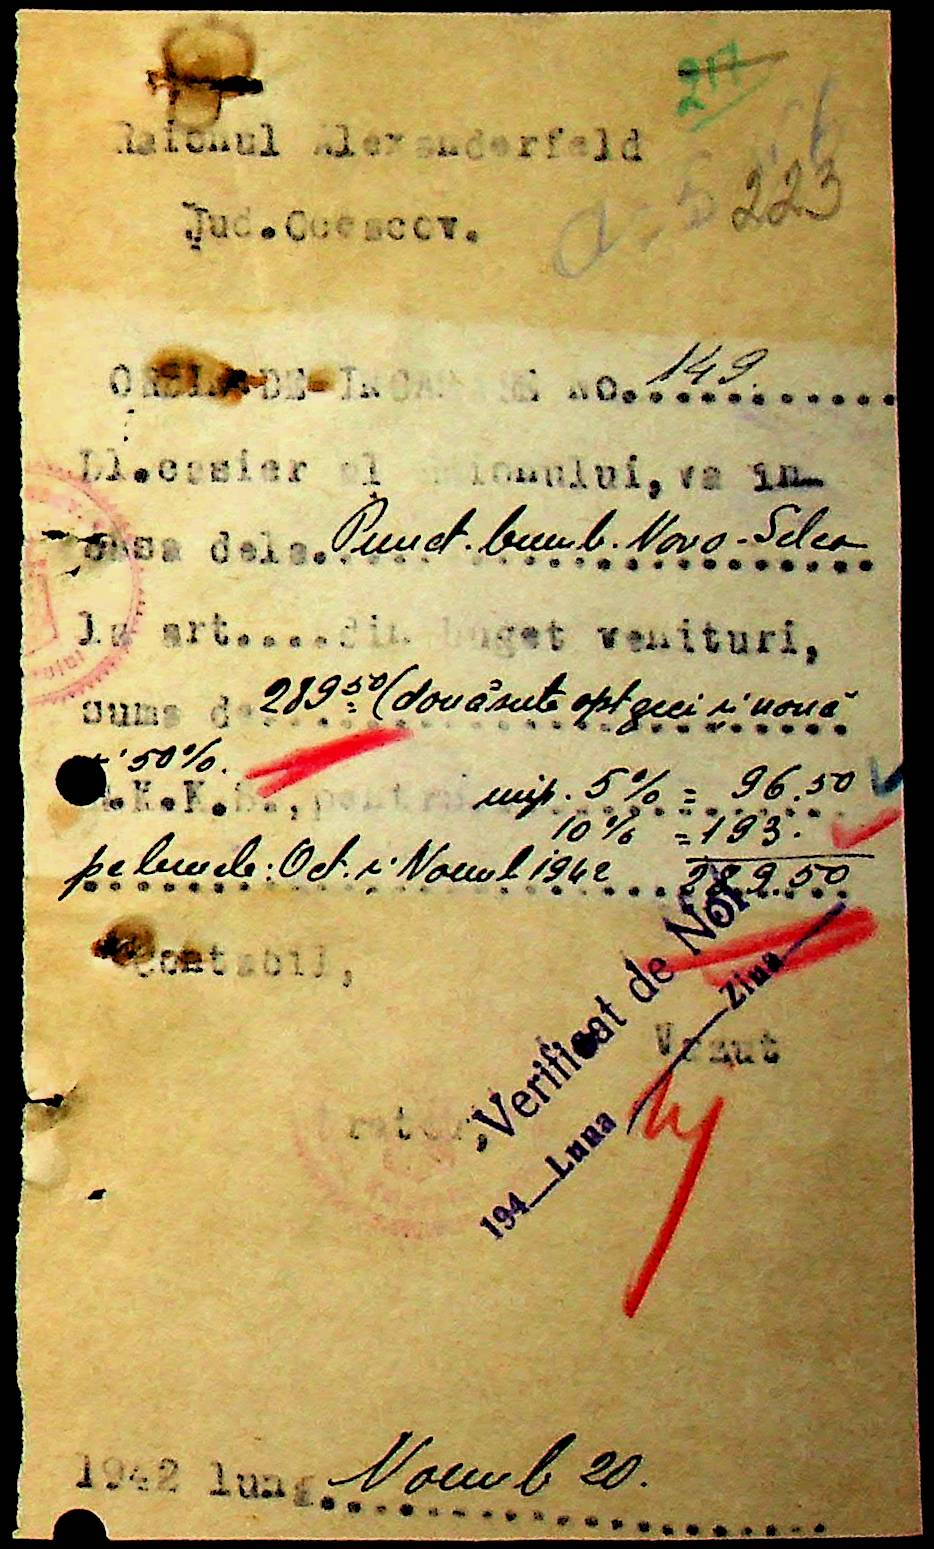 217
Raionul Alexanderfeld
223
Jud.Oceacov.
ORDIN DE INCASARE No. 149
Dl.casier al raionului, va in-
casa dela. Punct. bumb. Novo-Selca
la art....din buget venituri,
suma de 289.50 (două sute opt zeci și nouă
și 50%.
R.K.K.S., pentru imp. 5% = 96.50
10% = 193.
pe lunile: Oct. și Noemb 1942 289.50
Contabil,
Verificat de Noi
194__Luna____Ziua____
Vazut
1942 luna Noemb 20.